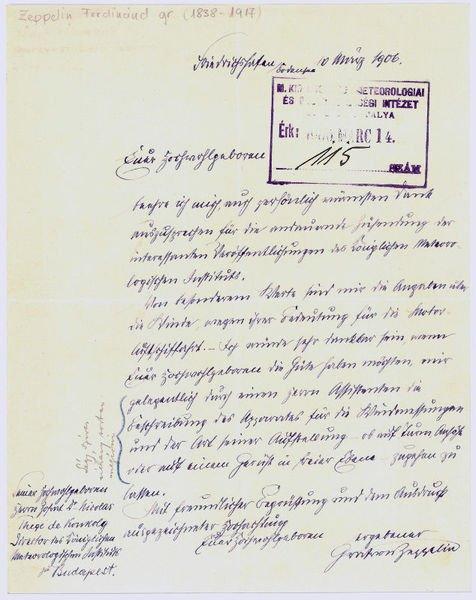 Zeppelin Ferdinánd gr. (1838-1917)
Friedrichshafen
Bodensee
März 1906.
METEOROLOGIAI
ÉS INTÉZET
Érk: 1906 MARC 14.
115 SZÁM
Euer Hochwohlgeboren
beehre ich mich, auch persönlich wärmsten Dank
auszusprechen für die andauernde Zusendung der
interessanten Veröffentlichungen des Königlichen Meteoro-
logischen Instituts.
Von besonderem Werte sind mir die Angaben über
die Winde, wegen ihrer Bedeutung für die Motor-
Luftschiffahrt. - Ich würde sehr dankbar sein wenn
Euer Hochwohlgeboren die Güte haben möchten, mir
gelegentlich durch einen Herrn Assistenten die
Beschreibung des Apparates für die Windmessungen
und der Art seiner Aufstellung - ob auf Turm
oder auf einem Gerüst in freier Ebene - zugehen zu
lassen.
Mit freundlicher Begrüssung und dem Ausdruck
ausgezeichneter Hochachtung
Euer Hochwohlgeboren
ergebener
Graf von Zeppelin
Seiner Hochwohlgeboren
Herrn Hofrat Dr. Nicolas
Thege de Konkoly
Director des Königlichen
Meteorologischen Instituts
Budapest.